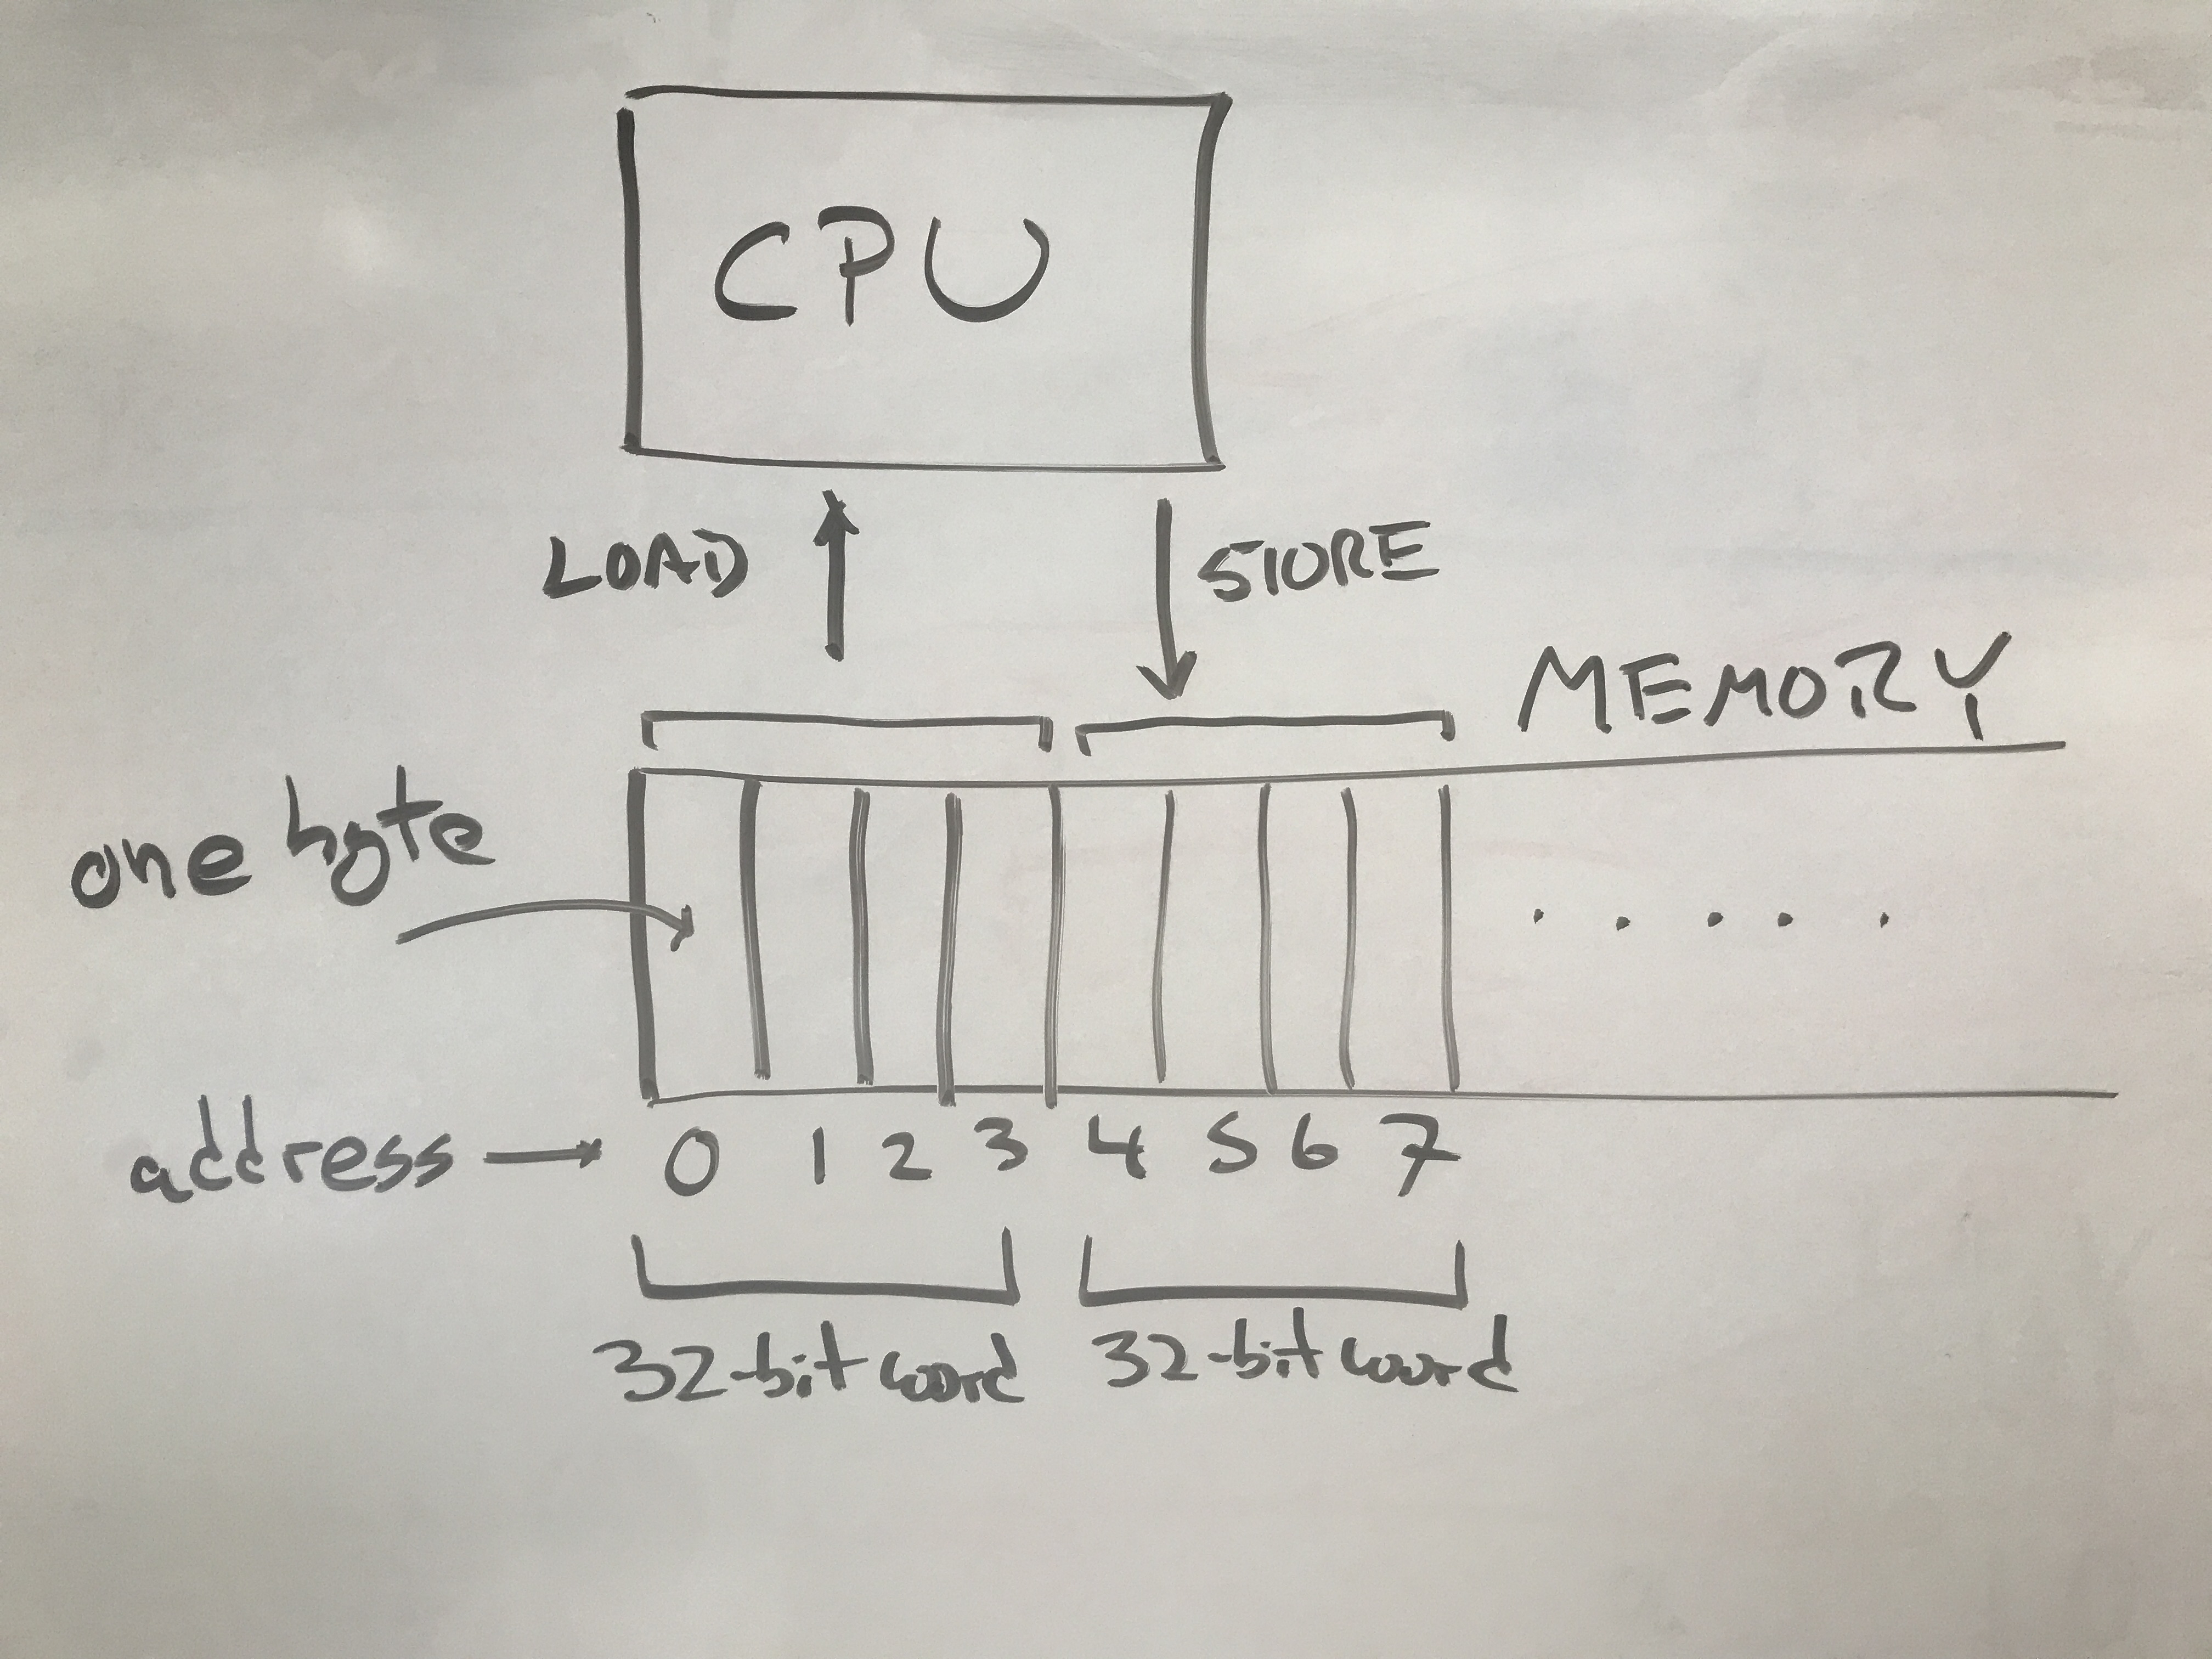 CPU
LOAD
STORE
MEMORY
one byte
address
0 1 2 3 4 5 6 7
32-bit word 32-bit word